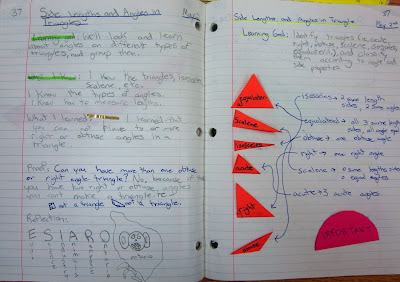 37
Side Lengths and Angles in
Triangles
May
Learning Goal: We'll look and learn
about angles on different types of
triangles, and group them.
What I Know: I know the triangles, isosceles
Scalene, etc.
I know the types of angles.
I know how to measure lengths.
What I learned I learned that
you can not place to or more
right or obtuse angles in a
triangle.
Proof: Can you have more than one obtuse
or right angle triangle? No, because if
you have two right or obtuse angles
you can't make a triangle.
not a triangle. not a triangle.
Reflection:
E S I A R O
Side Lengths and Angles in Triangles
37
May 3rd
Learning Goal: Identify triangles (acute,
right, obtuse, scalene, isosceles,
equilateral), and classify
them according to angle and
side properties
equilateral
Scalene
isosceles
acute
right
obtuse
isosceles → 2 same length
sides, 2 same angles
equilateral → all 3 same length
sides, all angles equal
obtuse → one obtuse angle
right → one right angle
Scalene → no same lengths sides
no equal angles
acute → 3 acute angles